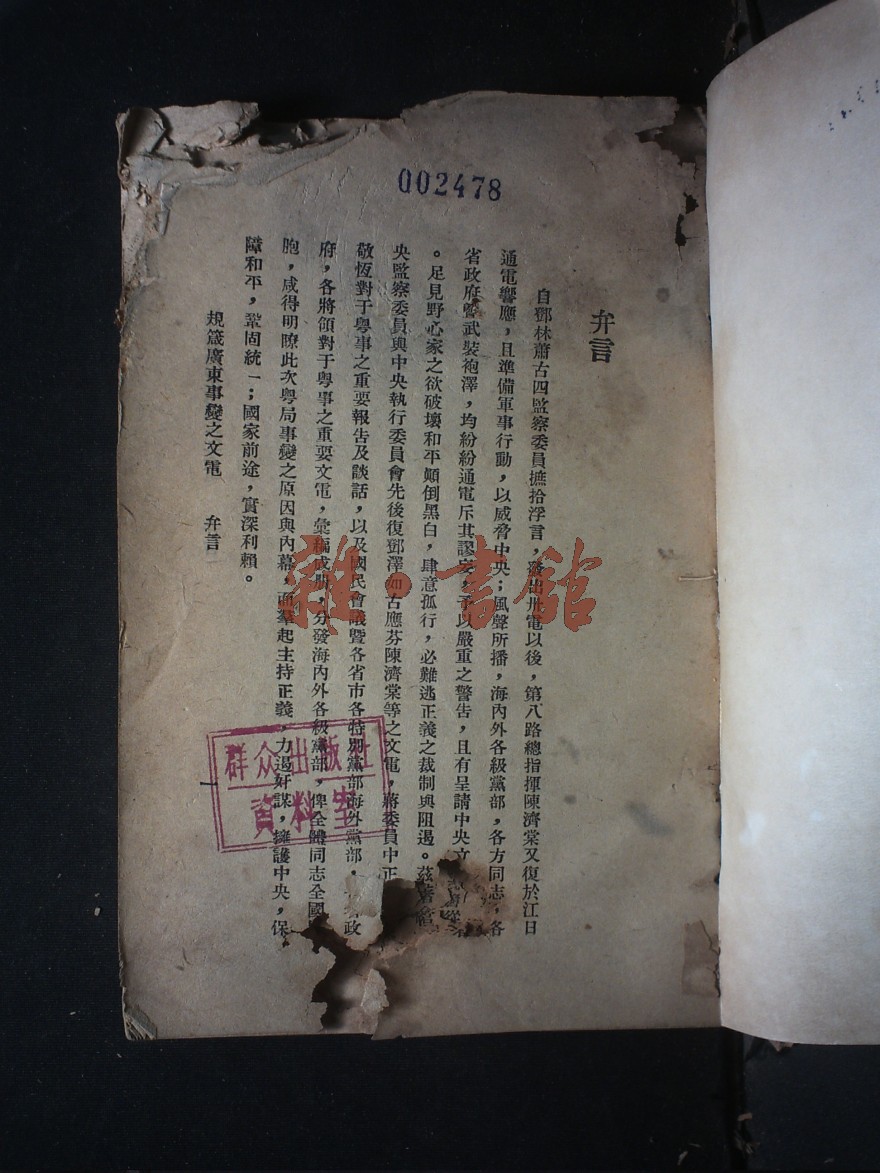 002478
弁言
自鄧林蕭古四監察委員摭拾浮言，發出卅電以後，第八路總指揮陳濟棠又復於江日
通電響應，且準備軍事行動，以威脅中央；風聲所播，海內外各級黨部，各方同志，各
省政府暨武裝袍澤，均紛紛通電斥其謬妄，予以嚴重之警告，且有呈請中央
。足見野心家之欲破壞和平顛倒黑白，肆意孤行，必難逃正義之裁制與阻遏。茲
央監察委員與中央執行委員會先後復鄧澤如古應芬陳濟棠等之文電，蔣委員中正
敬恆對于粵事之重要報告及談話，以及國民會議暨各省市各特別黨部海外黨部，政
府，各將領對于粵事之重要文電，彙編成册，分發海內外各級黨部，俾全體同志全國
胞，咸得明瞭此次粵局事變之原因與內幕，而羣起主持正義，力遏奸謀，擁護中央，保
障和平，鞏固統一；國家前途，實深利賴。
規箴廣東事變之文電 弁言
群众出版社
資料室
雜·書館